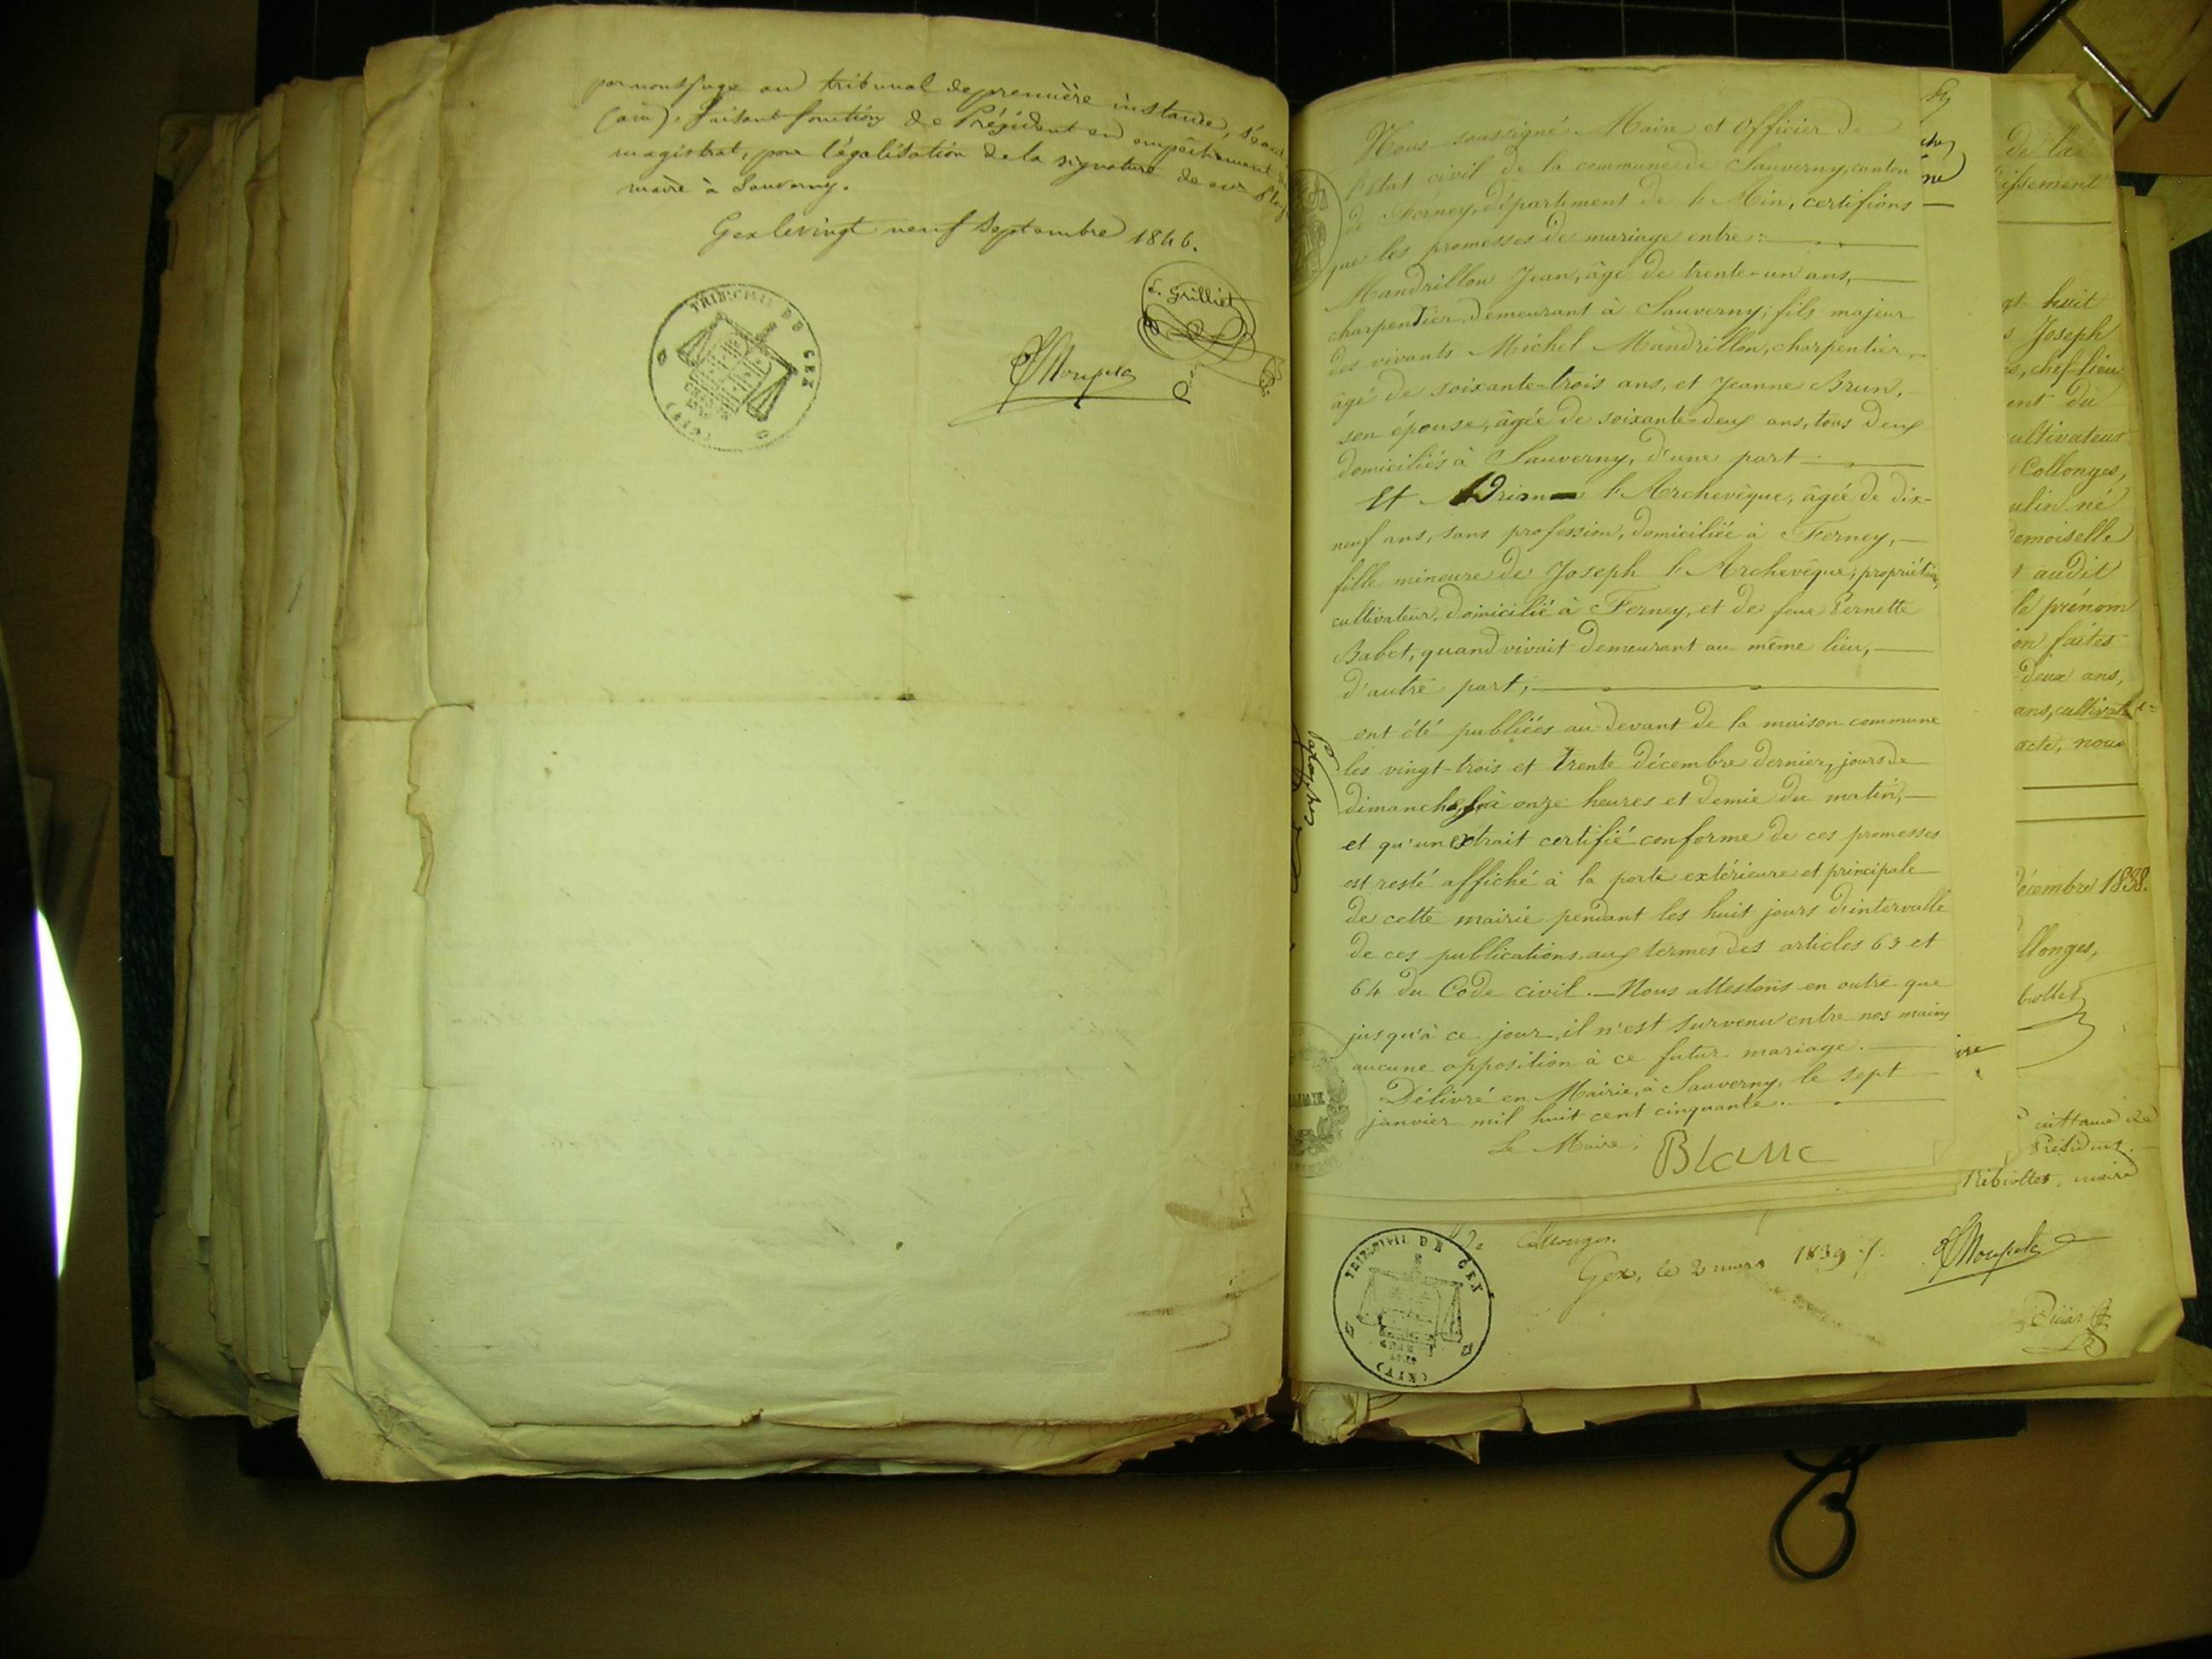 par nous juge au tribunal de première instance, séant
(ain), faisant fonction de Président en empêchement
magistrat, pour légalisation de la signature de
maire à Sauverny.
Gex le vingt neuf Septembre 1846.
TRIB. CIVIL DE GEX
(AIN)
J. Grilliet
Nous soussigné Maire et Officier de
l'Etat civil de la commune de Sauverny, canton
de Ferney, département de l'Ain, certifions
que les promesses de mariage entre :
Mandrillon Jean, âgé de trente-un ans,
charpentier, demeurant à Sauverny; fils majeur
des vivants Michel Mandrillon, charpentier,
âgé de soixante-trois ans, et Jeanne Brun,
son épouse, âgée de soixante-deux ans, tous deux
domiciliés à Sauverny, d'une part
Et l'Archevêque, âgée de dix-
neuf ans, sans profession, domiciliée à Ferney,
fille mineure de Joseph l'Archevêque, propriétaire,
cultivateur, domicilié à Ferney, et de feue Pernette
Babet, quand vivait demeurant au même lieu,
d'autre part;
ont été publiées au devant de la maison commune
les vingt-trois et trente décembre dernier, jours de
dimanche, à onze heures et demie du matin,
et qu'un extrait certifié conforme de ces promesses
est resté affiché à la porte extérieure et principale
de cette mairie pendant les huit jours d'intervalle
de ces publications, aux termes des articles 63 et
64 du Code civil. — Nous attestons en outre que
jusqu'à ce jour, il n'est survenu entre nos mains
aucune opposition à ce futur mariage.
Délivré en Mairie, à Sauverny, le sept
janvier mil huit cent cinquante.
Le Maire;
Blanc
de Collonges.
Gex, le 2 mars 1839
TRIB. CIVIL DE GEX
(AIN)
de la
issement
gt-huit
Joseph
, chef-lieu
ent du
ultivateur
Collonges,
ulin né
demoiselle
audit
le prénom
on faites
deux ans,
ans, cultivate
acte, nous
écembre 1838.
llonges,
Président.
maire